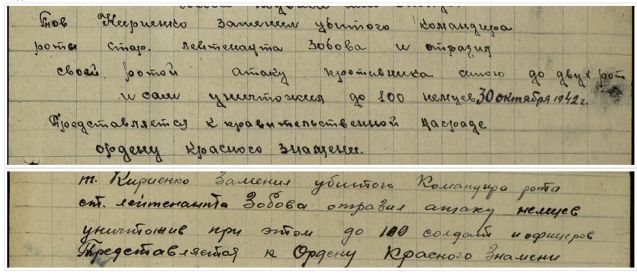 Тов Кириенко заменил убитого командира
роты стар. лейтенанта Зобова и отразил
своей ротой атаку противника силою до двух рот
и сам уничтожил до 100 немцев 30 октября 1942 г.
Представляется к правительственной награде
ордену Красного знамени.
т. Кириенко Заменил убитого Командира роты
ст. лейтенанта Зобова отразил атаку немцев
уничтожив при этом до 100 солдат и офицеров
Представляется к Ордену Красного Знамени